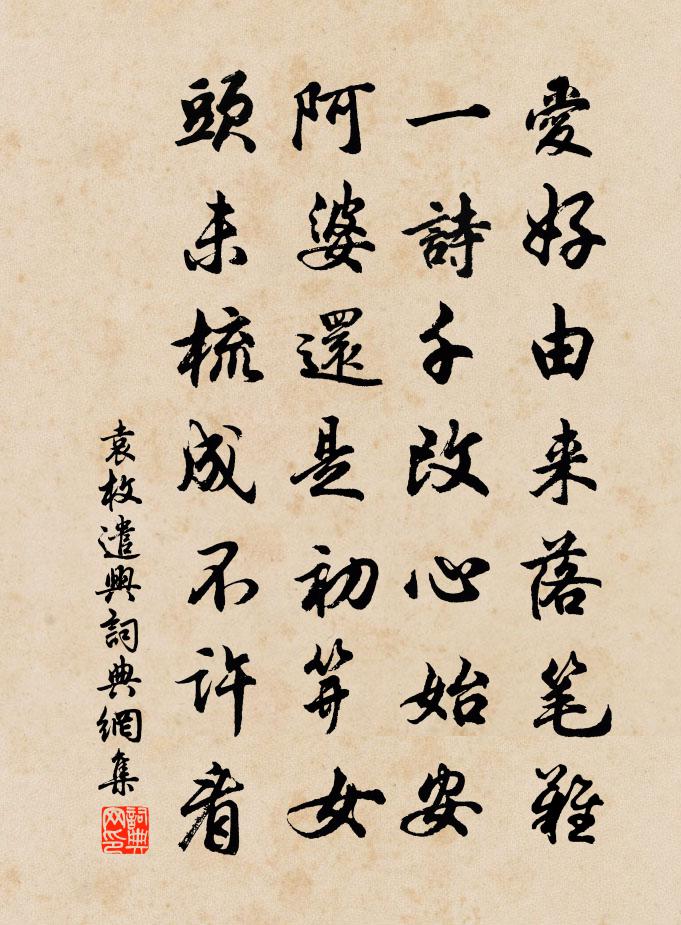 愛好由来落笔難
一詩千改心始安
阿婆還是初笄女
頭未梳成不許看
袁枚遣興詞典網集
詞典網印